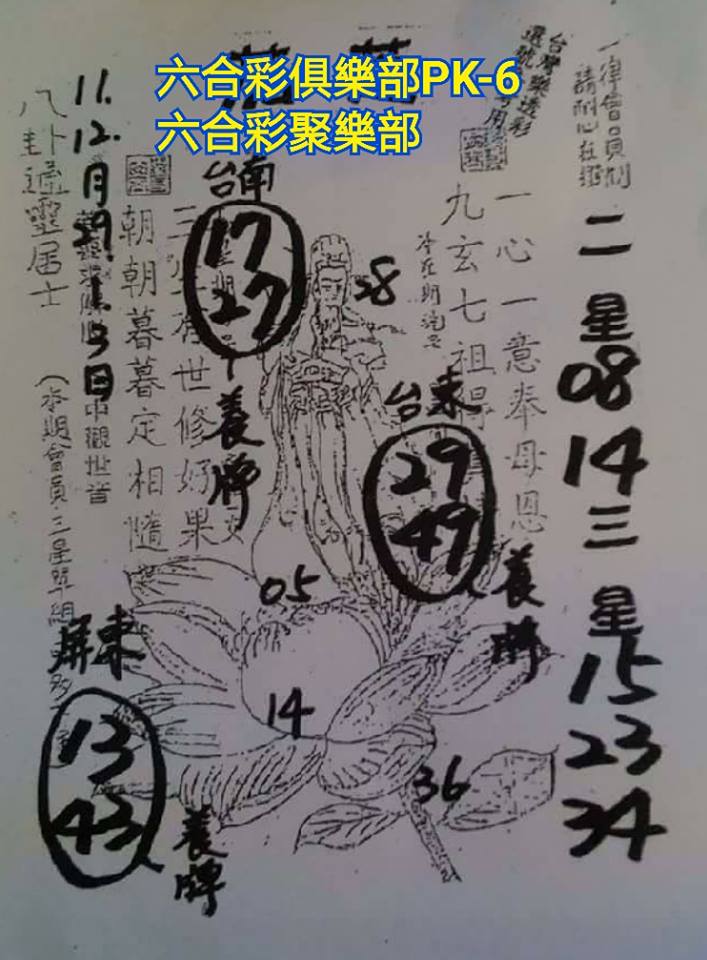 六合彩俱樂部PK-6
六合彩聚樂部
一律會員制
請耐心在線
台灣樂透彩
選號專用
二
星
08
14
三
星
15
23
34
一心一意奉母恩
九玄七祖得
台東
29
49
養牌
28
台南
17
27
養牌
05
14
36
朝朝暮暮定相隨
世修好果
11.
12.
月
29.
1.
3
日
中觀世音
八卦通靈居士
(本期會員三星單組
屏東
13
43
養牌